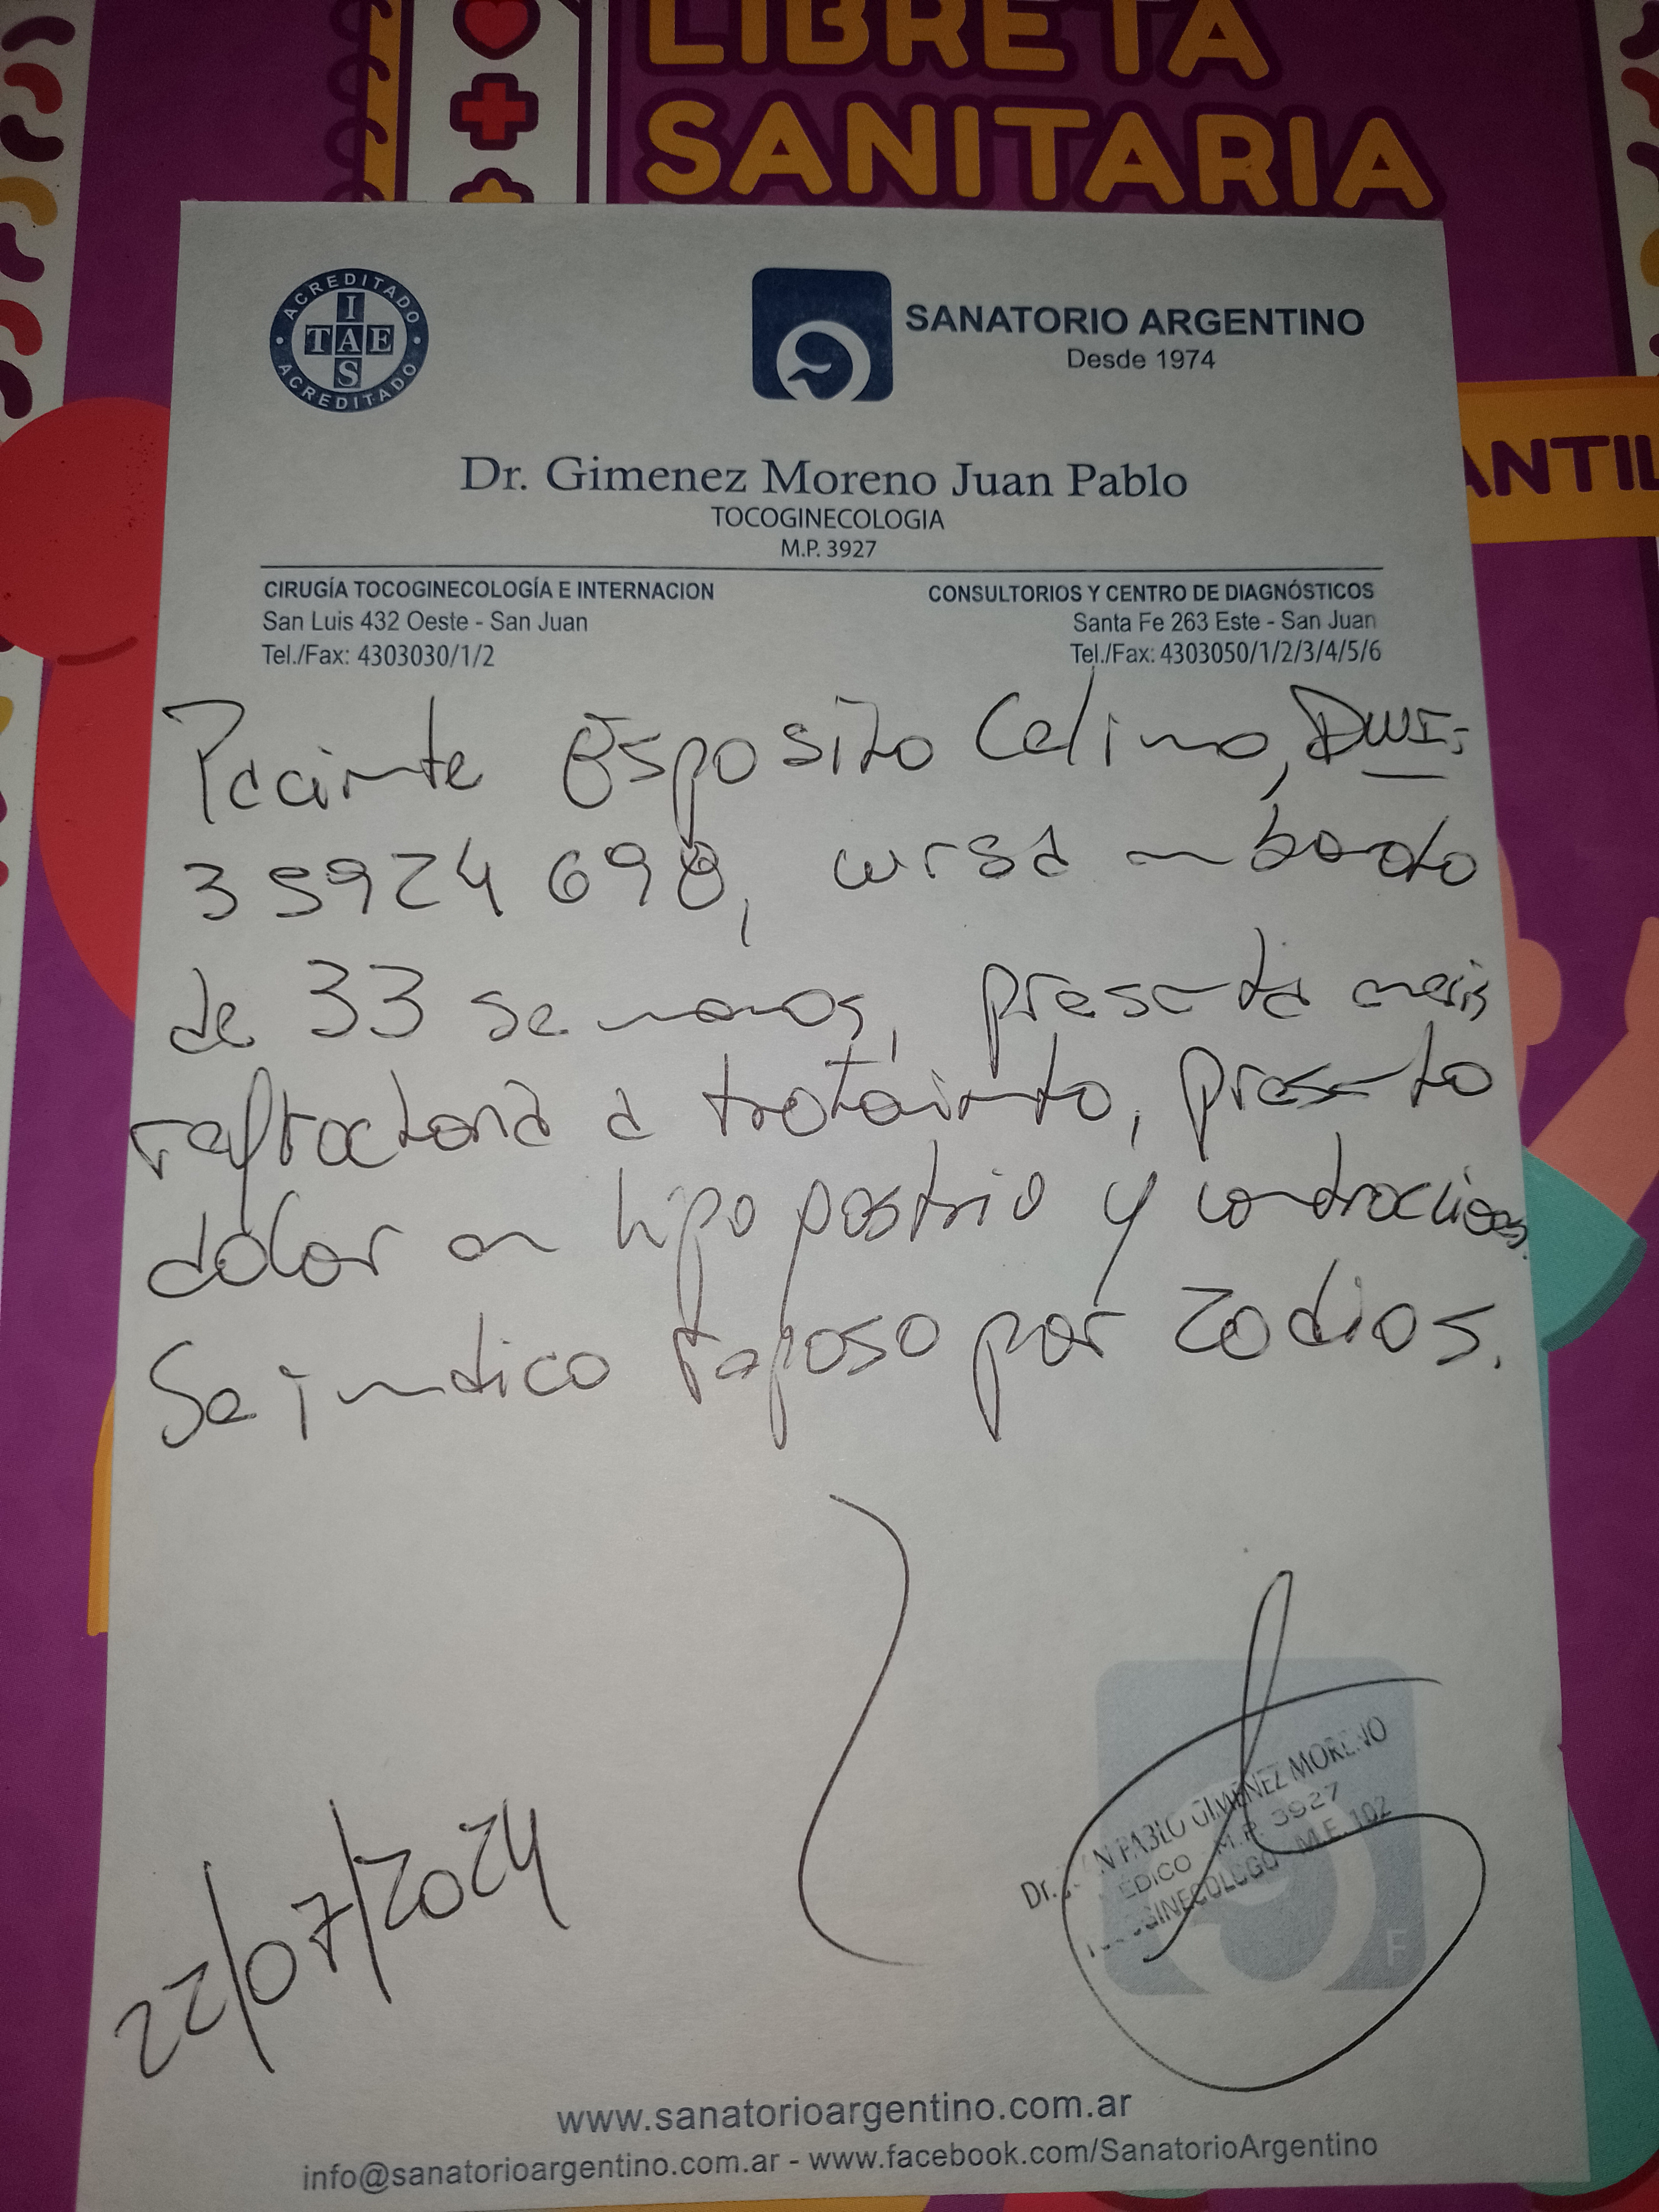 LIBRETA
SANITARIA
ANTIL
ACREDITADO
ITAES
ACREDITADO
SANATORIO ARGENTINO
Desde 1974
Dr. Gimenez Moreno Juan Pablo
TOCOGINECOLOGIA
M.P. 3927
CIRUGÍA TOCOGINECOLOGÍA E INTERNACION
San Luis 432 Oeste - San Juan
Tel./Fax: 4303030/1/2
CONSULTORIOS Y CENTRO DE DIAGNÓSTICOS
Santa Fe 263 Este - San Juan
Tel./Fax: 4303050/1/2/3/4/5/6
Paciente Esposito Celina, DNI:
35924698, cursa embarazo
de 33 semanas, presenta
refractaria a tratamiento, presenta
dolor en hipogastrio y contracciones.
Se indica reposo por 20 dias.
22/07/2024
Dr. JUAN PABLO GIMENEZ MORENO
MEDICO - M.P. 3927
TOCOGINECOLOGO - M.E. 102
F
www.sanatorioargentino.com.ar
info@sanatorioargentino.com.ar - www.facebook.com/SanatorioArgentino